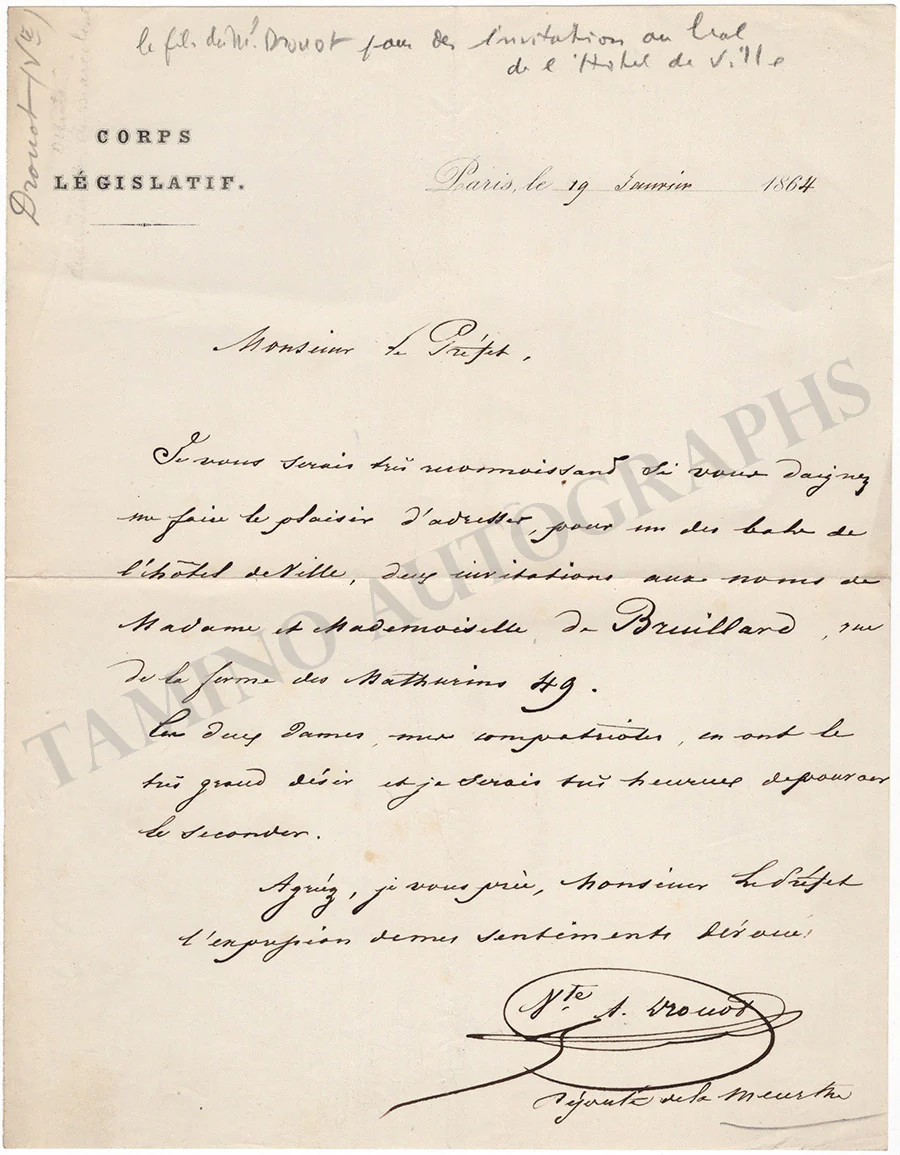 le fils du Ml. Drouot pour des invitation au bal
de l'Hôtel de Ville
Drouot (Vte)
CORPS
LÉGISLATIF.
Paris, le 19 Janvier 1864
Monsieur le Préfet,
Je vous serais très reconnoissand si vous daignez
me faire le plaisir d'adresser, pour un des bals de
l'hôtel de Ville, deux invitations aux noms de
Madame et Mademoiselle de Breuillard, rue
de la ferme des Mathurins 49.
Ces deux dames, mes compatriotes, en ont le
très grand désir et je serais très heureux de pouvoir
le seconder.
Agréez, je vous prie, Monsieur Le Préfet
l'expression de mes sentiments dévoués
Vte A. Drouot
Député de la Meurthe
TAMINO AUTOGRAPHS